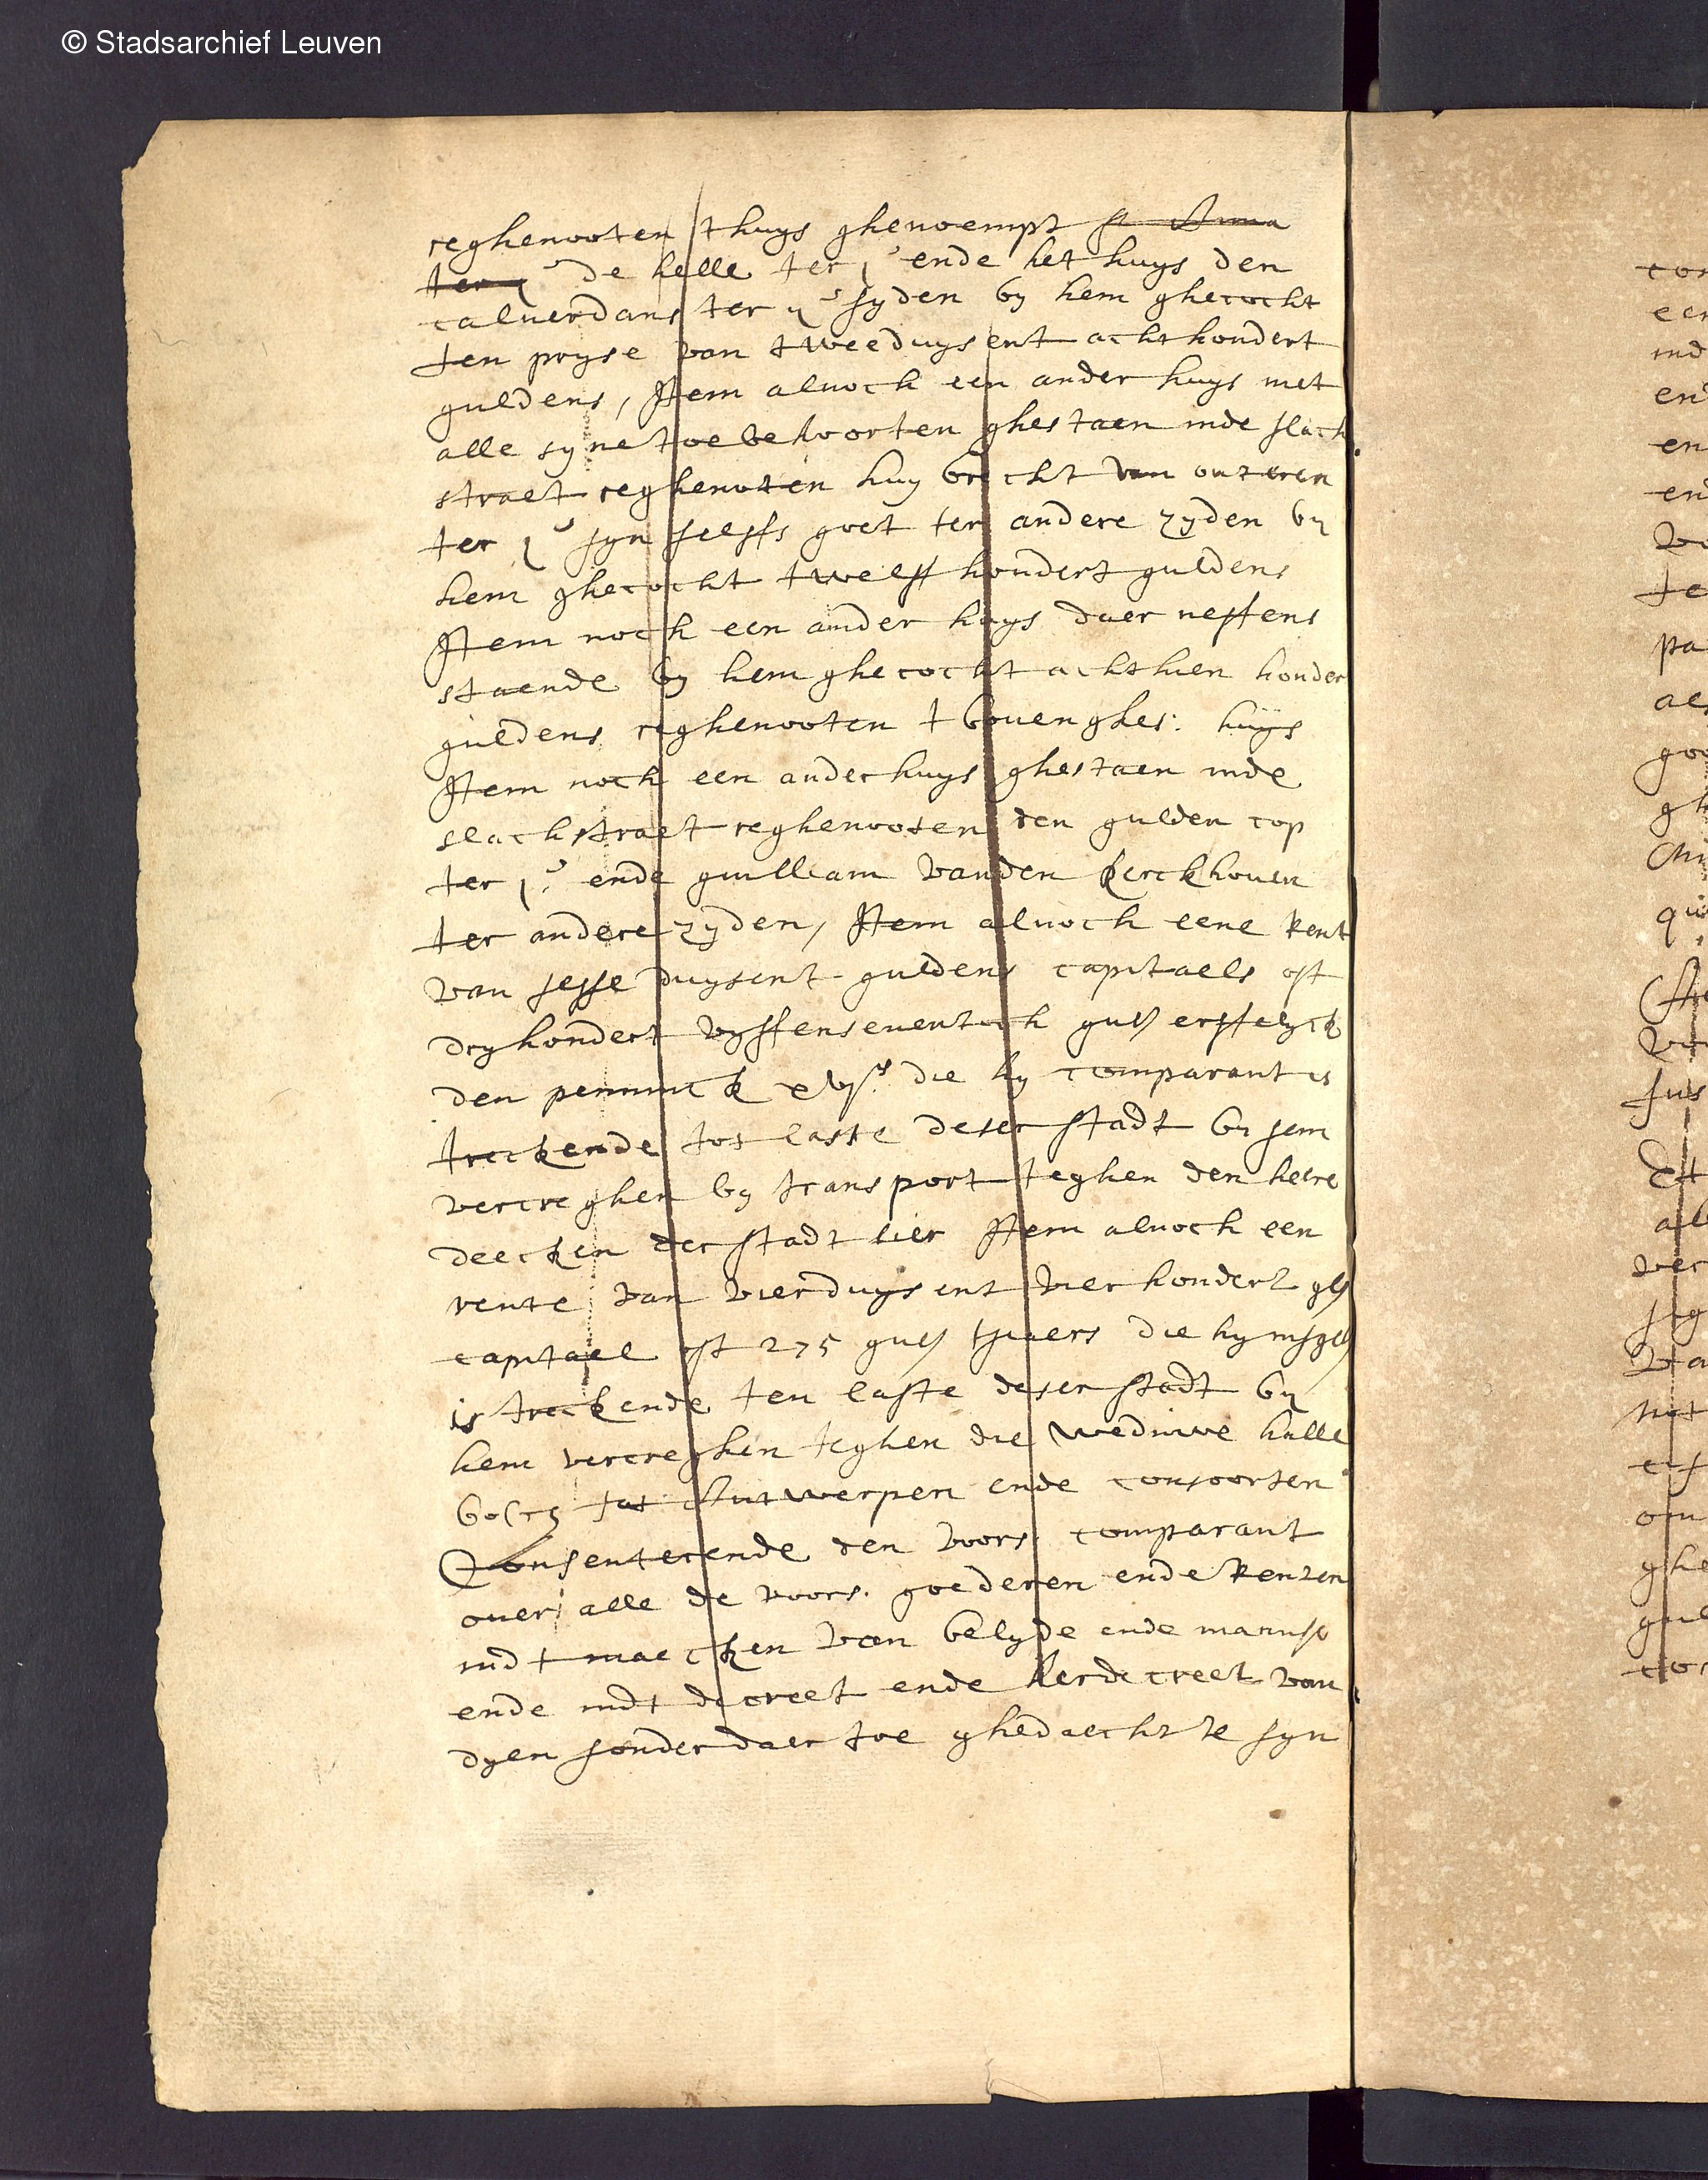 © Stadsarchief Leuven
reghenooten thuys ghenoempt st Anna
ter j de helle ter je ende het huys den
caluerdans ter ije syden by hem ghecocht
ten pryse van tweeduysent achthondert
guldens, Item alnoch een ander huys met
alle syne toebehoorten ghestaen inde slach
straet reghenoten huybrecht van
ter je syn selffs goet ter andere zyden by
hem ghecocht twelff hondert guldens
Item noch een ander huys daer neffens
staende by hem ghecocht achthien honder
guldens reghenooten tbouenghes: huys
Item noch een ander huys ghestaen inde
slachstraet reghenooten den gulden cop
ter je ende guilliam vanden kerckhouen
ter andere zyden, Item alnoch eene rent
van sesse duysent guldens capitaels oft
dryhondert vyffenseuentich guls erffelyck
den penninck xvje die hy comparant is
treckende tot laste deser stadt by hem
vercreghen by transport teghen den heere
deecken der stadt lier Item alnoch een
rente van vierduysent vierhondert gls
capitael oft 275 guls tsiaers die hy insgel
is treckende ten laste deser stadt by
hem vercreghen teghen die weduwe
tot Antwerpen ende consoorten
Consenterende den voors. comparant
ouer alle de voors. goederen ende renten
indt maecken van belyde ende mannisse
ende indt decreet ende herdecreet van
dyen sonder daer toe ghedaecht te syn